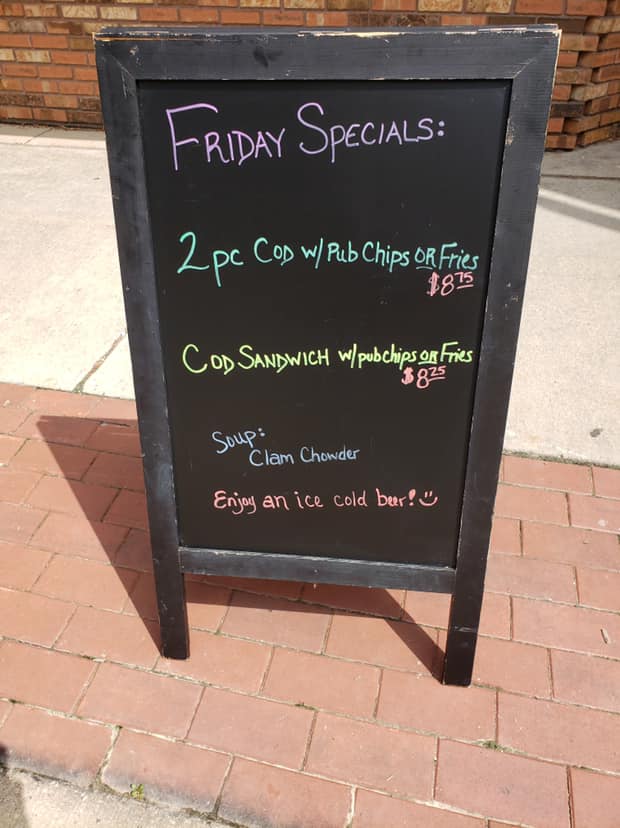 FRIDAY SPECIALS:
2pc COD w/ Pub Chips OR Fries
$8 75
COD SANDWICH w/pubchips OR Fries
$8 25
Soup:
Clam Chowder
Enjoy an ice cold beer!